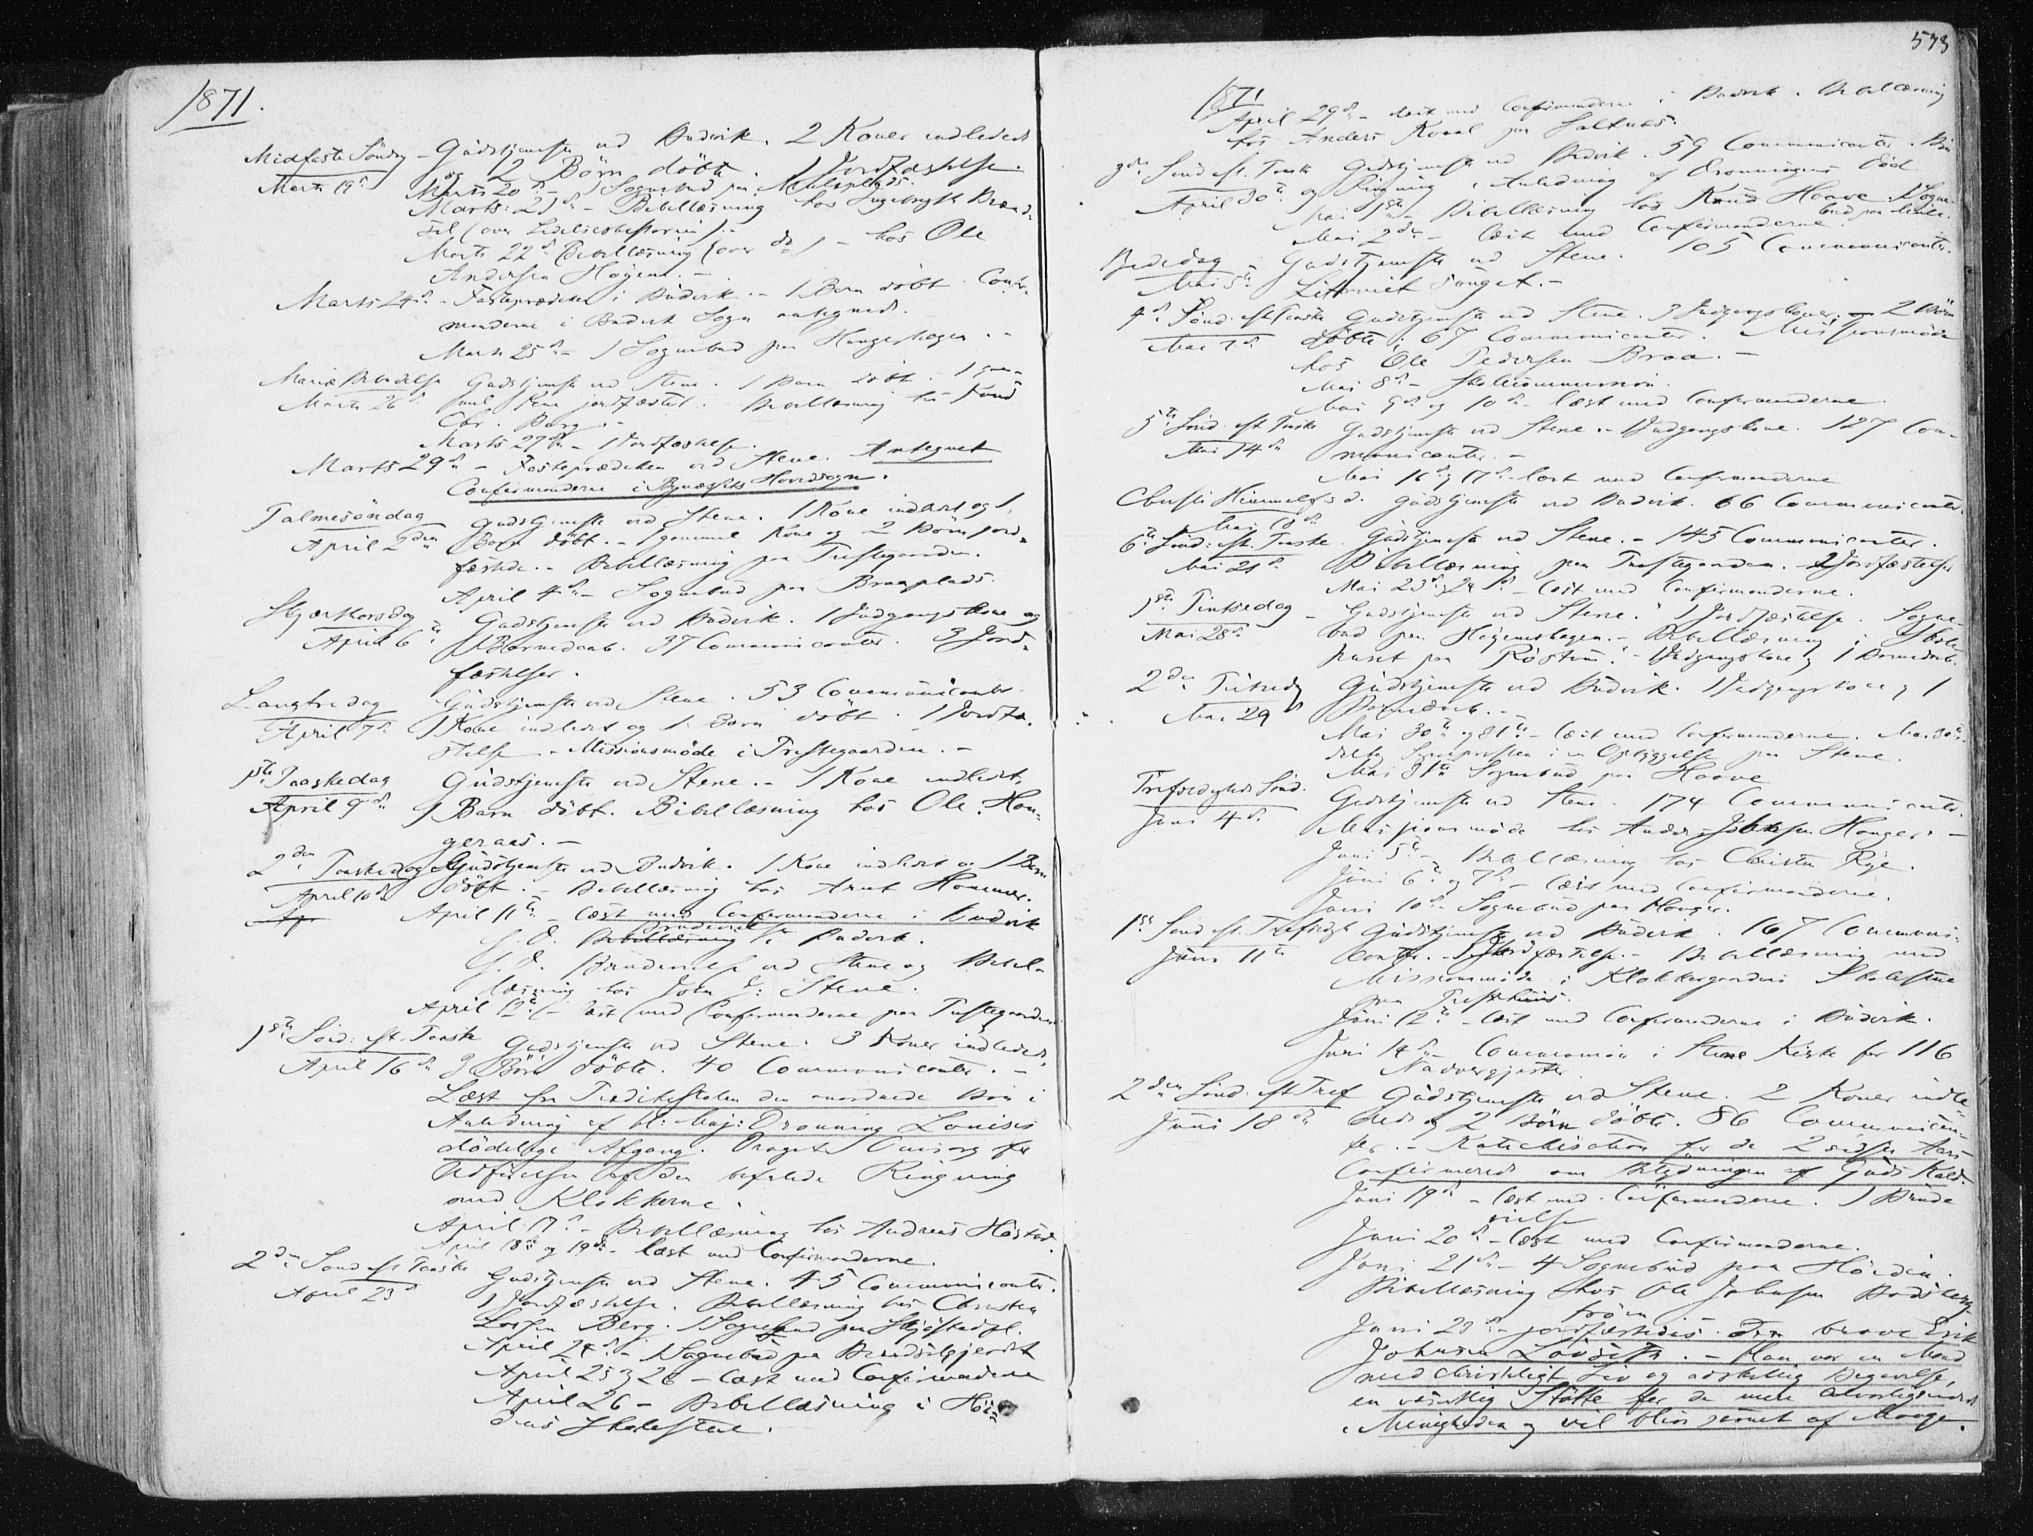 1871.
Midfaste Søndag - Gudstjeneste ved Budvik. 2 Koner indledede
Marts 19de og 2 Børn døbte. 1 Jordfæstelse.
Marts 20de - 1 Sognebud paa
Marts 21de - Bibellæsning hos Ingebrigt
(over Lidelseshistorien).-
Marts 22de Bibellæsning (over do) - hos Ole
Andersen Høgem.-
Marts 24de - Fasteprædiken i Budvik.- 1 Barn døbt. Confir-
manderne i Budvik Sogn antegnede.
Marts 25de - 1 Sognebud paa
Mariæ Bebudelse Gudstjeneste ved Stene. 1 Barn døbt. 1 gam-
Marts 26de mel Kone jordfæstet. Bibellæsning hos Knud
Chr. Berg.-
Marts 27de - 1 Jordfæstelse.
Marts 29de - Fasteprædiken ved Stene. Antegnet
Confirmanderne i Hovedsogn.
Palmesøndag Gudstjeneste ved Stene. 1 Kone indledet og 1
April 2den Barn døbt.- 1 gammel Kone og 2 Børn jord-
fæstede.- Bibellæsning paa Præstegaarden.
April 4de - Sognebud paa Braaplads.
Skjærthorsdag Gudstjeneste ved Budvik. 1 Indgangskone og
April 6te 1 Barnedaab. 37 Communicanter. 3 Jord-
fæstelser.
Langfredag Gudstjeneste ved Stene. 53 Communicanter.
April 7de 1 Kone indledet og 1 Barn døbt. 1 Jordfæ-
stelse.- Missionsmøde i Præstegaarden.-
1ste Paaskedag Gudstjeneste ved Stene.- 1 Kone indledet,
April 9de 1 Barn døbt. Bibellæsning hos Ole Hon-
geraas.-
2den Paaskedag Gudstjeneste ved Budvik. 1 Kone indledet og 1 Barn
April 10de døbt.- Bibellæsning hos Arnt Hammer.
Ap April 11te - læst med Confirmanderne i Budvik
S. D. Bibellæsning Brudevielse i Budvik.
S. D. Brudevielse ved Stene og Bibel-
læsning hos John J: Stene.
April 12te - læst med Confirmanderne paa Præstegaarden
1ste Sønd: eft. Paaske Gudstjeneste ved Stene. 3 Koner indledede,
April 16de 3 Børn døbte. 40 Communicanter.-
Læst fra Prædikestolen den anordnede Bøn i
Anledning af H: Maj: Dronning Louises
dødelige Afgang. Draget Omsorg for
Udførelsen af den befalede Ringning
med Klokkerne.
April 17de - Bibellæsning hos Andreas Høstad.
April 18de og 19de - læst med Confirmanderne.
2den Sønd eft Paaske Gudstjeneste ved Stene. 45 Communicanter.
April 23de 1 Jordfæstelse. Bibellæsning hos Christen
Larsen Berg. 1 Sognebud paa Skjøstadpl.
April 24de - 1 Sognebud paa
April 25 & 26 - læst med Confirmanderne
April 26 - Bibellæsning i
Skolestue.
573
1871
April 29de - læst med Confirmanderne i Budvik. Bibellæsning
hos Anders Kvaal paa Saltnæs.
3die Sønd eft. Paaske Gudstjeneste ved Budvik. 59 Communicanter. Bøn
April 30te og Ringning i Anledning af Dronningens Død.
Mai 1ste - Bibellæsning hos Knud Haave. 1 Sogne-
bud paa
Mai 2den - læst med Confirmanderne.
Bededag - Gudstjeneste ved Stene. 105 Communicanter.
Mai 5te Litaniet sunget.-
4de Sønd. eft Paaske Gudstjeneste ved Stene. 3 Indgangskoner. - 2 Børn
Mai 7de døbte; 67 Communicanter. Missionsmøde
hos Ole Pedersen Braa.-
Mai 8de - Skolecommission.
Mai 9de og 10de - læst med Confirmanderne.
5te Sønd. eft Paaske Gudstjeneste ved Stene.- 1 Indgangskone. 127 Com-
Mai 14de municanter.-
Mai 16de & 17de - læst med Confirmanderne
Christi Himmelf.d. Gudstjeneste ved Budvik. 66 Communicanter.
Mai 18de
6te Sønd: eft. Paaske Gudstjeneste ved Stene.- 145 Communicanter.
Mai 21de Bibellæsning paa Præstegaarden. 2 Jordfæstelser
Mai 23de & 24de - læst med Confirmanderne.
1ste Pintsedag - Gudstjeneste ved Stene. 1 Jordfæstelse. Sogne-
Mai 28de bud paa Høgemshagen.- Bibellæsning i Skole-
huset paa Røstum.- 1 Indgangskone & 1 Barnedaab.
2den Pintsedag Gudstjeneste ved Budvik. 1 Indgangskone & 1
Mai 29de Barnedaab.-
Mai 30te og 31te - læst med Confirmanderne. Mai 30te
Stene.
Mai 31te Sognebud paa Haave
Trefoldigheds Sønd. Gudstjeneste ved Stene. 174 Communicanter.
Juni 4de Missionsmøde hos Anders Johnsen Honger.-
Juni 5te - Bibellæsning hos Christen Rye.
Juni 6te og 7de - læst med Confirmanderne.
Juni 10de - Sognebud paa Honger.
1ste Sønd eft. Trefoldigh Gudstjeneste ved Budvik. 167 Communi-
Juni 11te canter. 1 Jordfæstelse.- Bibellæsning med
Missionsmøde i Klokkergaardens Skolestue
paa
Juni 12te - læst med Confirmanderne i Budvik.
Juni 14de - Communion i Stene Kirke for 116
Nadvergjester.
2den Sønd. eft Tref Gudstjeneste ved Stene. 2 Koner indle-
Juni 18de dede og 2 Børn døbte. 86 Communican-
ter.- Katechisation for de 2 sidste Aars
Confirmerede om Betydningen af Guds Kald.
Juni 19de - læst med Confirmanderne. 1 Brude
vielse
Juni 20de - læst med Confirmanderne.
Juni 21de - 4 Sognebud paa
Bibellæsning hos Ole Johnsen
Juni 23de - jordfæstedes den brave Erik
Johnsen - Han var en Mand
med christeligt Liv og adskillig Begavelse,
en væsentlig Støtte for de mere alvorligsindede
i Menigheden og vil blive savnet af Mange.